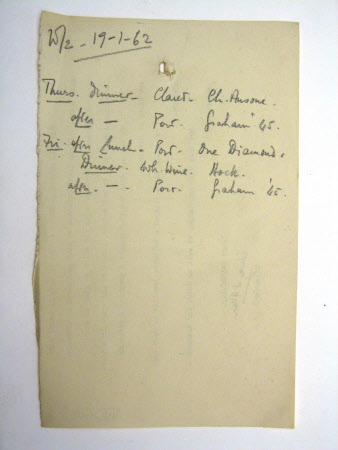 W/e - 19-1-62
Thurs. Dinner - Claret - Ch. Ausone.
after - Port. Graham '45.
Fri. after Lunch - Port - One Diamond.
Dinner. Wh. Wine. Hock.
after. - Port. Graham '45.